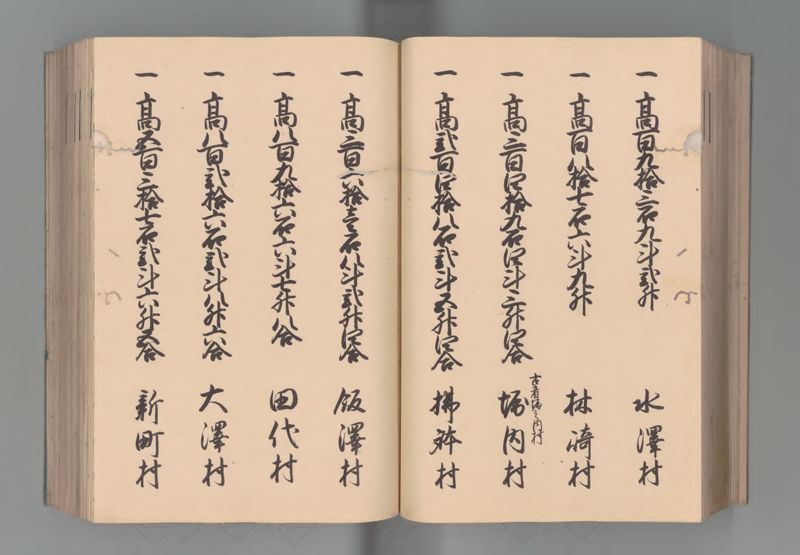 一高百九拾三石九斗弐升 水澤村
一高百八拾七石六斗九升 林崎村
一高三百四拾九石四斗三升四合 堀内村
古者堀之内村
一高弐百四拾八石弐斗五升四合 村
一高三百六拾壱石八斗弐升四合 飯澤村
一高八百九拾六石六斗七升八合 田代村
一高八百弐拾六石弐斗八升六合 大澤村
一高五百三拾七石弐斗六升五合 新町村